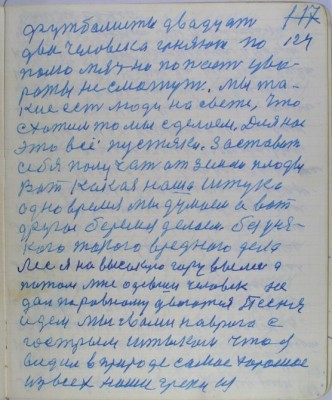 117
футболисты двадцат 124
два человека гоняют по
полю мяч на попасть уво-
роты не смогут. Мы та-
кие ест люди на свете, что
схотим то мы сделаем. Для нас
это всё пустяки. Заставит
себя получат от земли плоды
Вот какая наша штука
одно время мы думаем а вот
другое беремя делаем без вся-
кого такого вредного дела
Лес я на высокую гору вылез а
потом мне один человек не
дал поровному двигатся Песня
идем мы с вами на врага с
гострым штыком что я
видел в природе самое хорошое
из всех наше грехи